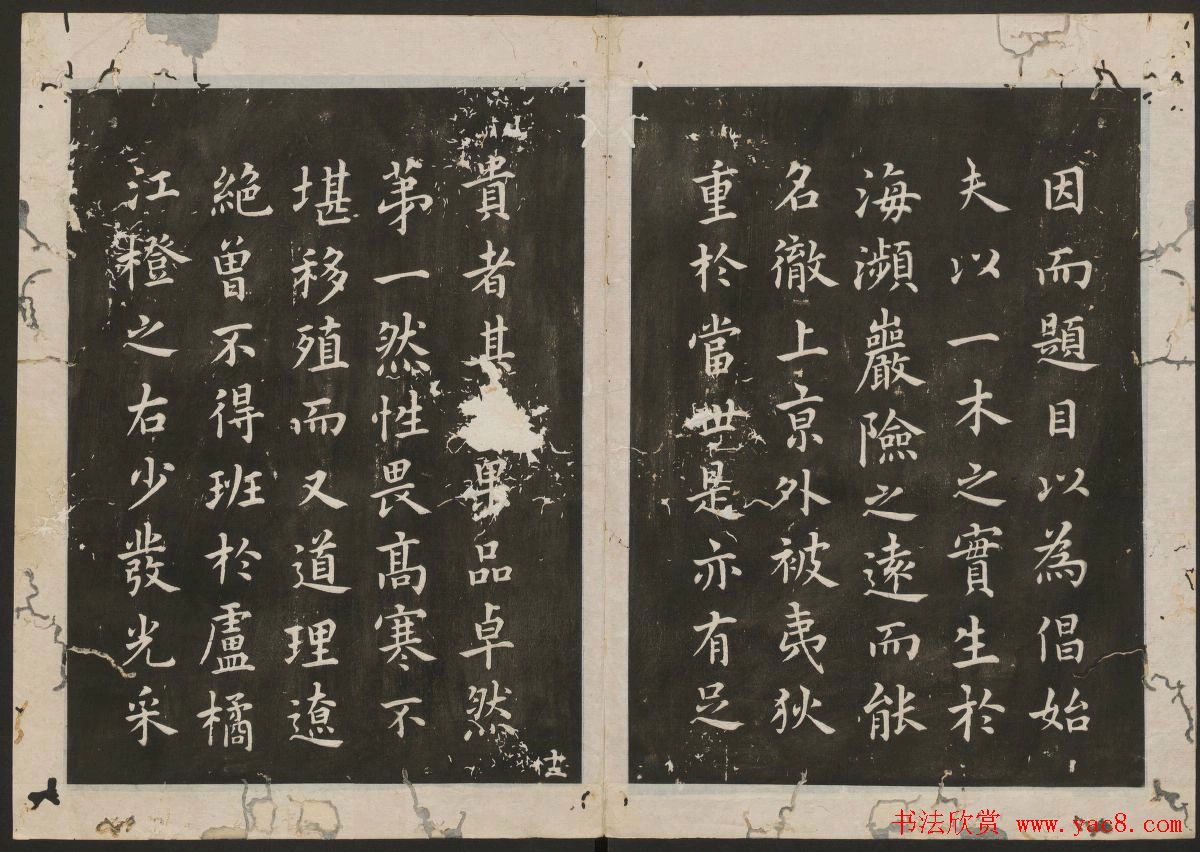 因而題目以為倡始
夫以一木之實生於
海瀕巖險之遠而能
名徹上京外被夷狄
重於當世是亦有足
貴者其果品卓然
第一然性畏高寒不
堪移殖而又道理遼
絕曾不得班於盧橘
江橙之右少發光采
書法欣赏 www.yac8.com